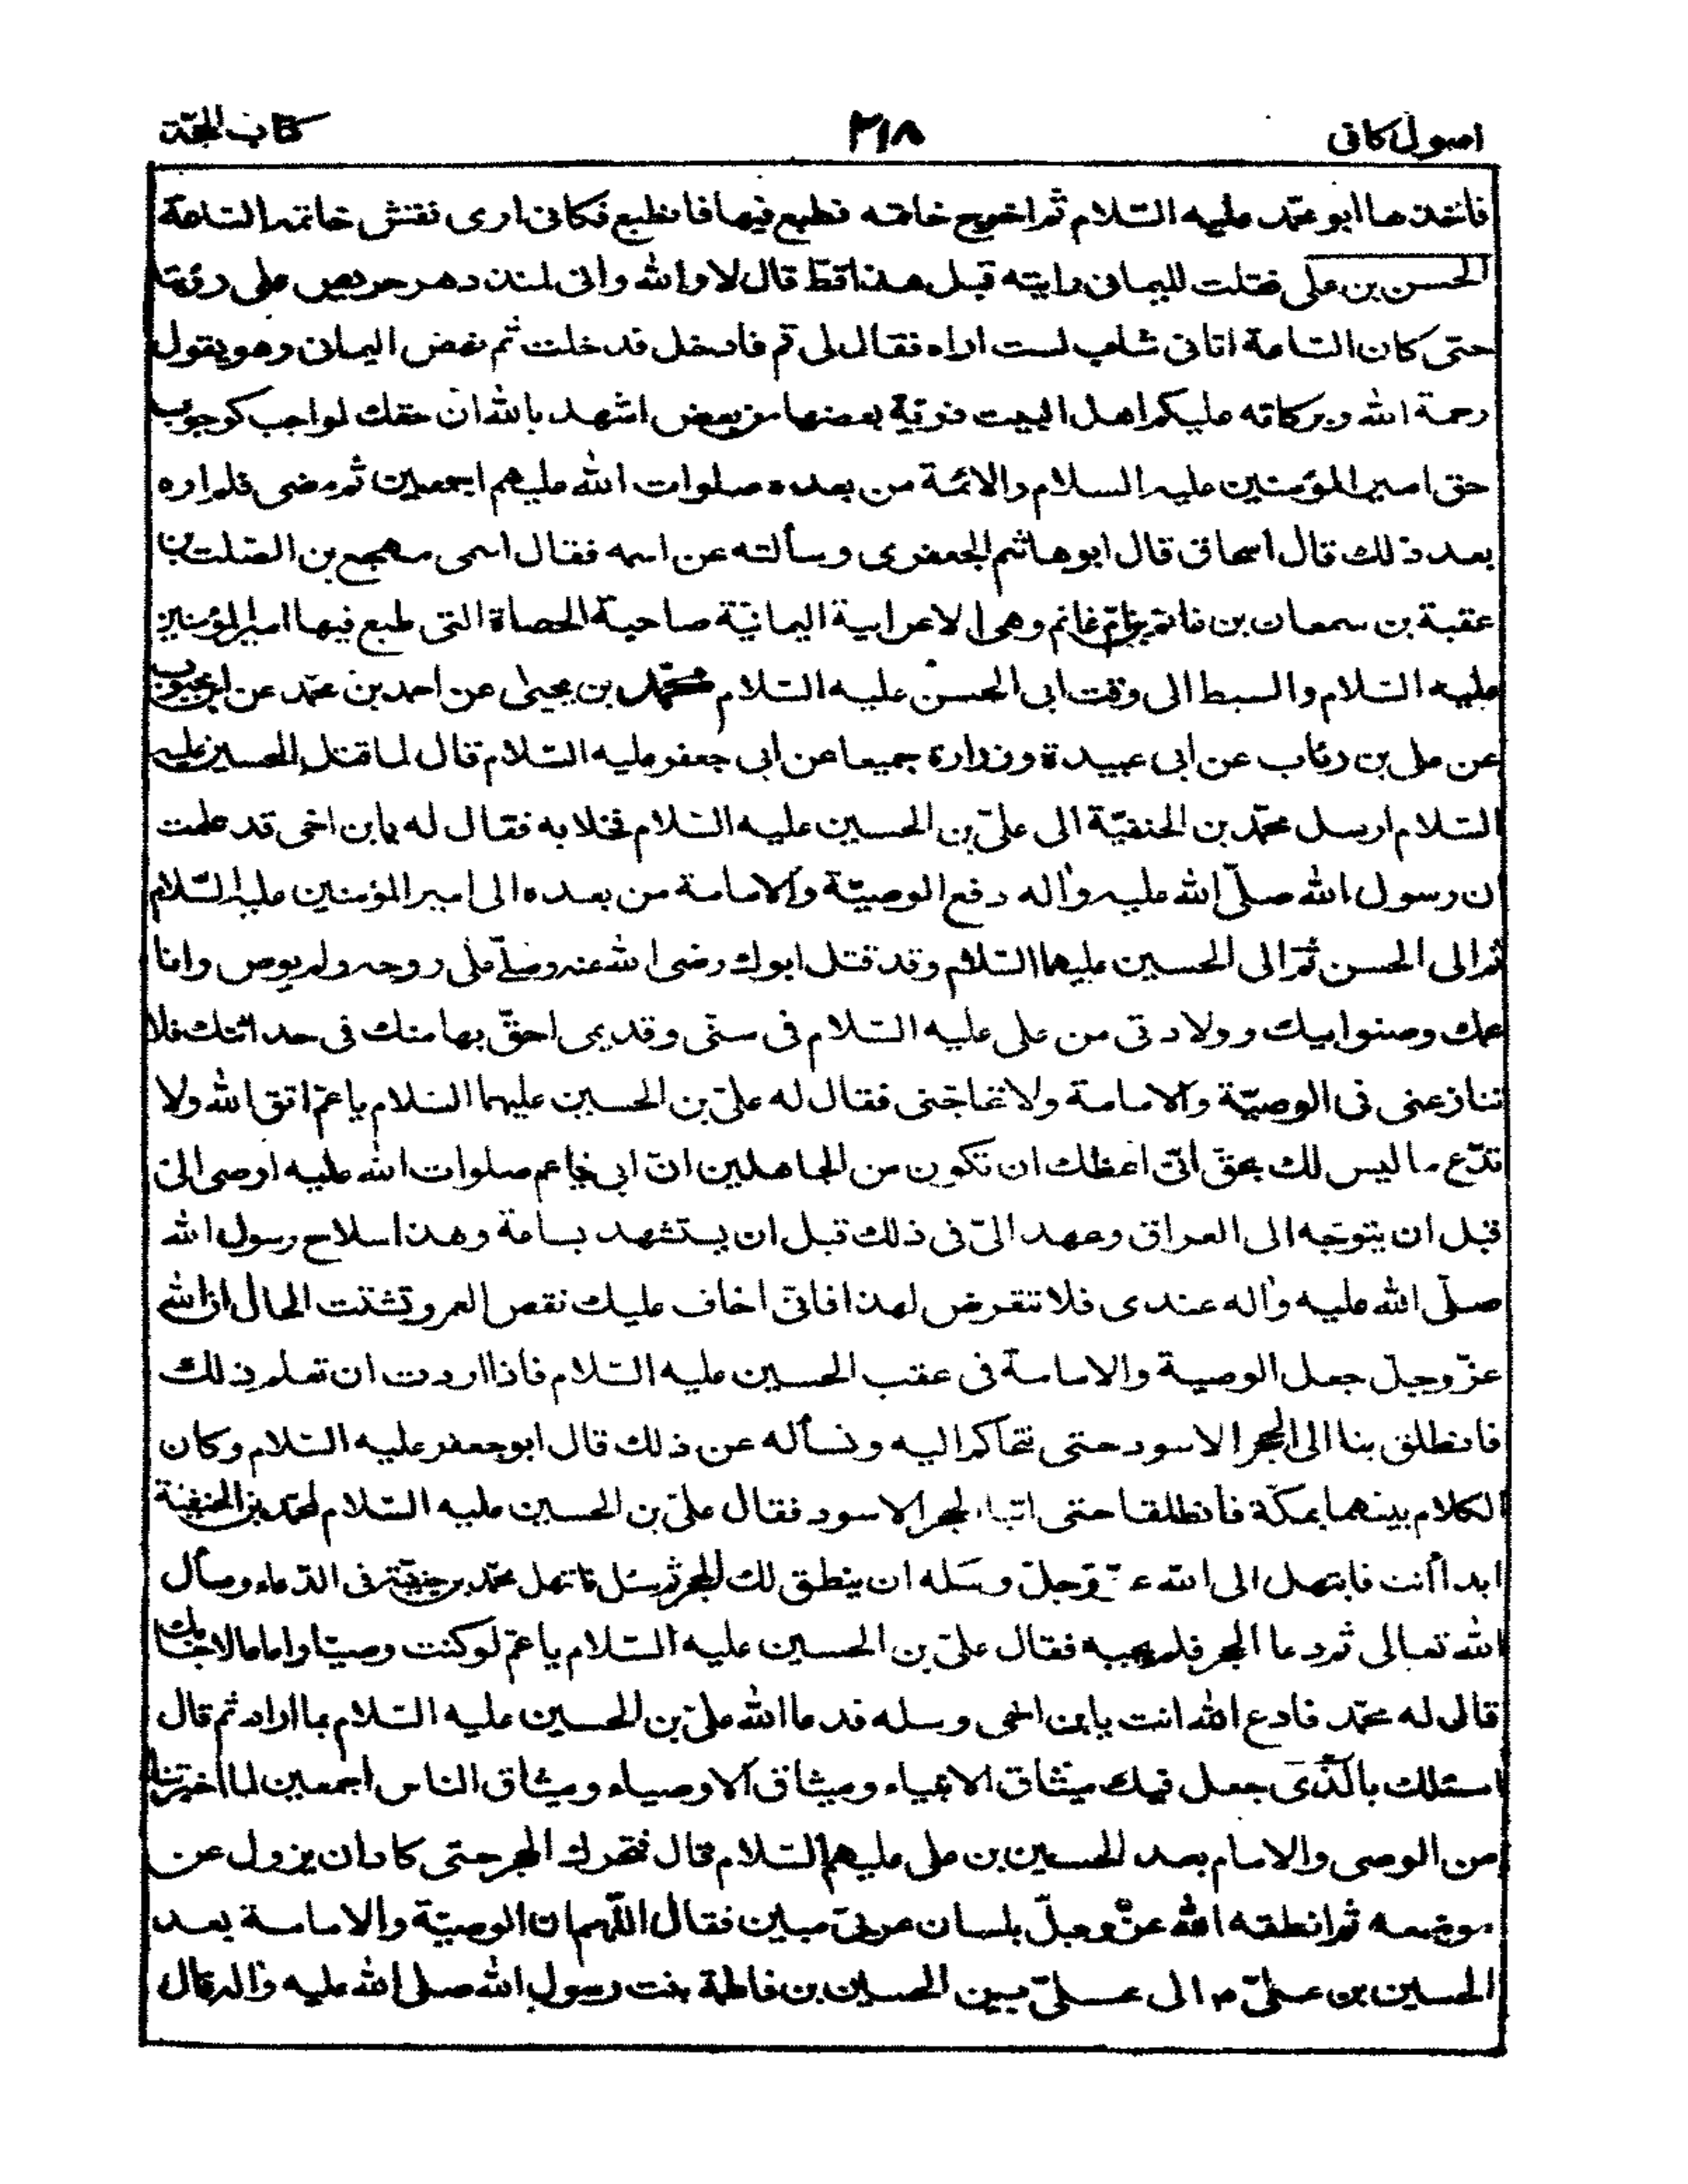 اصول كافى ٢١٨ كتاب الحجّة
فاخذها ابو محمّد عليه السّلام ثم اخرج خاتمه فطبع فيها فانطبع فكانى ارى نقش خاتمه السّاعة
الحسن بن على فقلت لليمانى رايته قبل هذا قط قال لا والله وانى لمنذ دهر حريص على رؤيته
حتى كان السّاعة اتانى شاب لست اراه فقال لى قم فادخل فدخلت ثم نهض اليمانى وهو يقول
رحمة الله وبركاته عليكم اهل البيت ذريّة بعضها من بعض اشهد بالله انّ حقك لواجب كوجوب
حق امير المؤمنين عليه السلام والائمّة من بعده صلوات الله عليهم اجمعين ثم مضى فلم اره
بعد ذلك قال اسحاق قال ابو هاشم الجعفرى وسألته عن اسمه فقال اسمى مهجع بن الصّلت بن
عقبة بن سمعان بن غانم بن امّ غانم وهى الاعرابية اليمانيّة صاحبة الحصاة التى طبع فيها امير المؤمنين
عليه السّلام والسبط الى وقت ابى الحسن عليه السّلام محمّد بن يحيى عن احمد بن محمّد عن ابن محبوب
عن على بن رئاب عن ابى عبيدة وزرارة جميعا عن ابى جعفر عليه السّلام قال لما قتل الحسين عليه
السّلام ارسل محمّد بن الحنفيّة الى علىّ بن الحسين عليه السّلام فخلا به فقال له يا بن اخى قد علمت
ان رسول الله صلّى الله عليه وآله دفع الوصيّة والامامة من بعده الى امير المؤمنين عليه السّلام
ثم الى الحسن ثم الى الحسين عليهما السّلام وقد قتل ابوك رضى الله عنه وصلّى على روحه ولم يوص وانا
عمك وصنو ابيك وولادتى من على عليه السّلام فى سنّى وقديمى احقّ بها منك فى حداثتك فلا
تنازعنى فى الوصيّة والامامة ولا تحاجّنى فقال له علىّ بن الحسين عليهما السّلام يا عم اتق الله ولا
تدّع ما ليس لك بحقّ انّى اعظك ان تكون من الجاهلين انّ ابى يا عم صلوات الله عليه اوصى الىّ
قبل ان يتوجّه الى العراق وعهد الىّ فى ذلك قبل ان يستشهد بساعة وهذا سلاح رسول الله
صلّى الله عليه وآله عندى فلا تتعرض لهذا فانّى اخاف عليك نقص العمر وتشتت الحال ان الله
عزّ وجلّ جعل الوصية والامامة فى عقب الحسين عليه السّلام فاذا اردت ان تعلم ذلك
فانطلق بنا الى الحجر الاسود حتى نتحاكم اليه ونسأله عن ذلك قال ابو جعفر عليه السّلام وكان
الكلام بينهما بمكّة فانطلقا حتى اتيا الحجر الاسود فقال علىّ بن الحسين عليه السّلام لمحمّد بن الحنفيّة
ابدأ انت فابتهل الى الله عزّ وجلّ وسله ان ينطق لك الحجر ثم سل فابتهل محمّد بن حنفيّة فى الدّعاء وسأل
الله تعالى ثم دعا الحجر فلم يجبه فقال علىّ بن الحسين عليه السّلام يا عمّ لو كنت وصيّا واماما لاجابك
قال له محمّد فادع الله انت يا بن اخى وسله فدعا الله علىّ بن الحسين عليه السّلام بما اراد ثم قال
اسئلك بالّذى جعل فيك ميثاق الانبياء وميثاق الاوصياء وميثاق الناس اجمعين لما اخبرتنا
من الوصى والامام بعد الحسين بن على عليهم السّلام قال فتحرك الحجر حتى كاد ان يزول عن
موضعه ثم انطقه الله عزّ وجلّ بلسان عربىّ مبين فقال اللّهم ان الوصيّة والامامة بعد
الحسين بن علىّ م الى علىّ بن الحسين بن فاطمة بنت رسول الله صلى الله عليه وآله قال